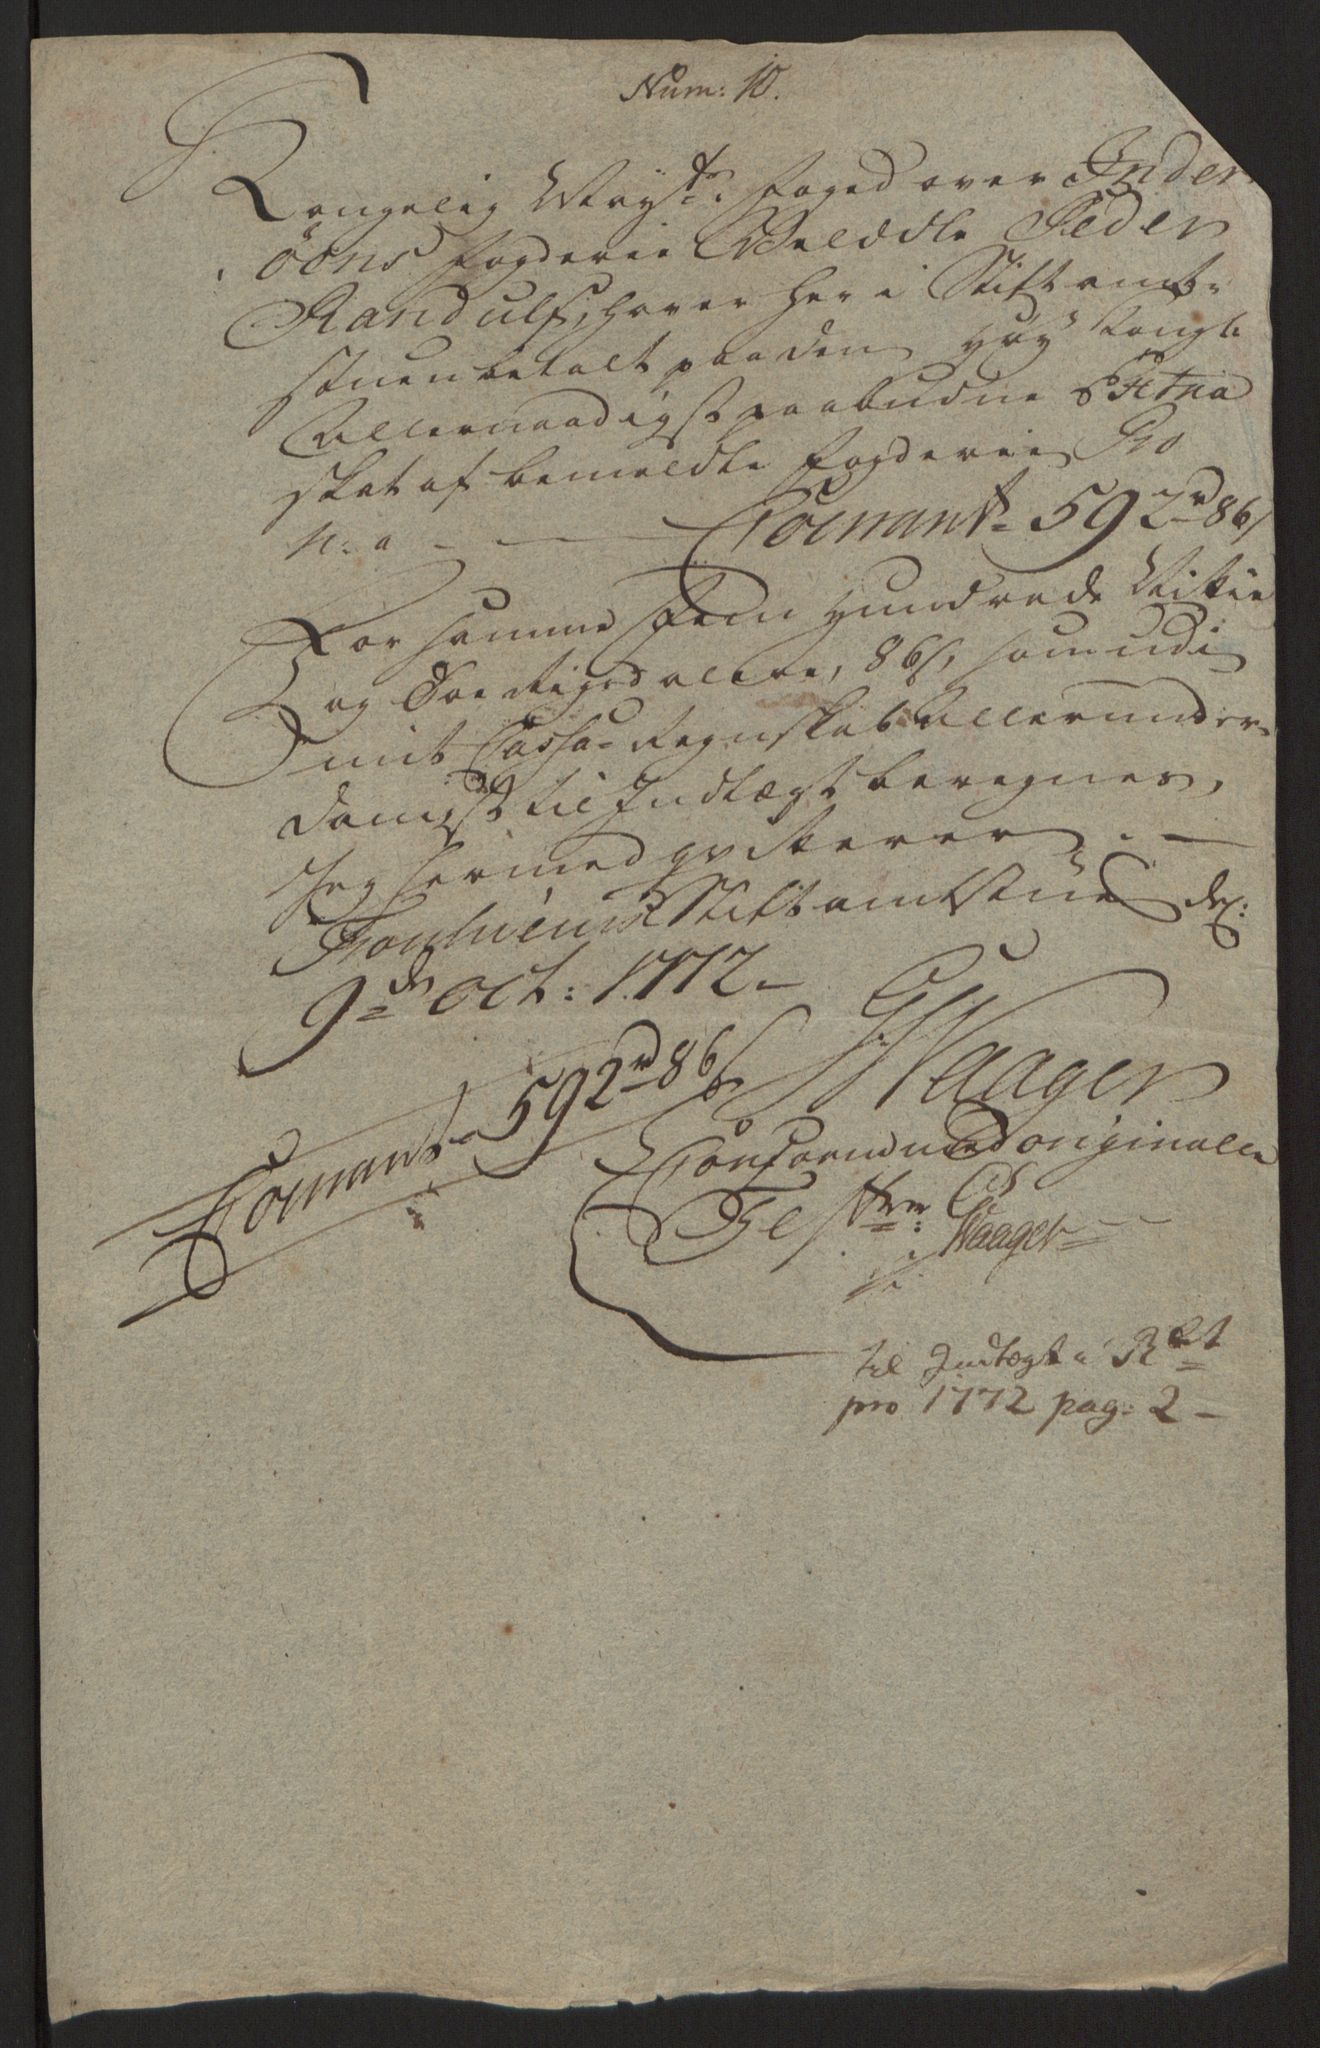 Num: 10.
Kongelig Mayts. Foged over Inder
öens Fogderie Velædle Peder
Randulf, haver her i Stiftamt-
stuen betalt paa den høy Kongl:
Allernaadigst paabudne Extra
skat af bemeldte Fogderie Pro
h: a - - Courant 592 rd 86 s
For samme Fem Hundrede Nitti
og Toe Rigsdalere, 86 s, som udi
mit Cassa-Regnskab Allerunder-
danigst til Indtægt beregnes,
Jeg hermed qvitterer. -
Tronhiems Stiftamtstue d:
9de Oct: 1772 -
Waager
Courant 592 rd 86 s
Conform med originalen
Test:
Waager
til Indtægt i Rgt
pro 1772 pag: 2 -